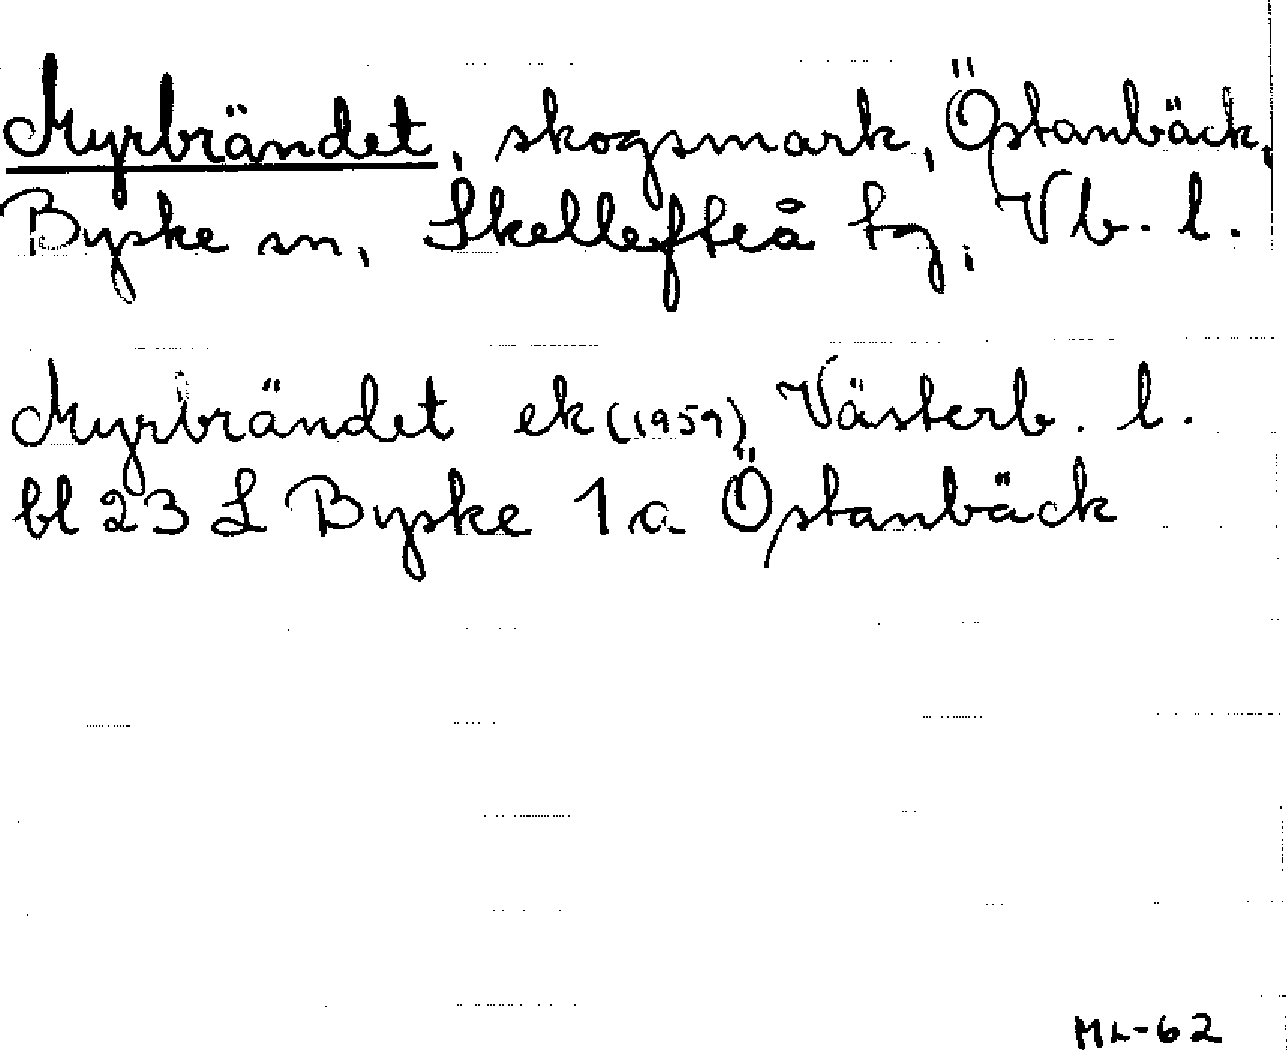 Myrbrändet, skogsmark, Östanbäck,
Byske sn, Skellefteå tg, Vb. l.
Myrbrändet ek (1959) Västerb. l.
bl 23 L Byske 1 a Östanbäck
ML-62